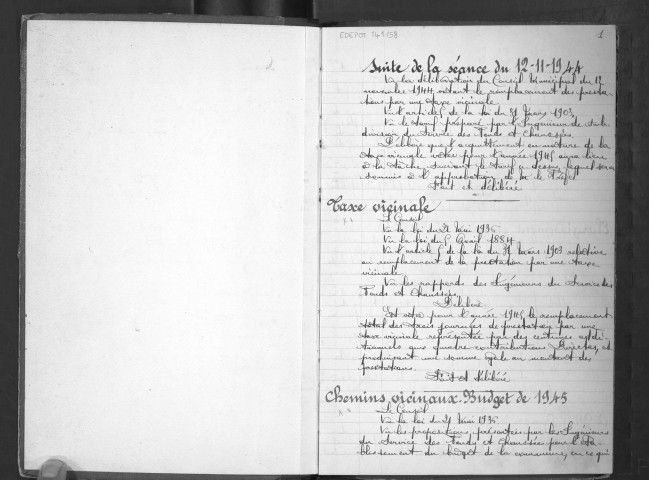 EDEPOT 149/58
1
Suite de la séance du 12-11-1944
Vu la délibération du Conseil Municipal du 12
novembre 1944 votant le remplacement des presta-
tions par une taxe vicinale
Vu l'article 5 de la loi du 31 Mars 1903
Vu le tarif préparé par l'Ingénieur de sub-
division du Service des Ponts et Chaussées
Délibère que l'acquittement en nature de la
taxe vicinale votée pour l'année 1945 aura lieu
à la tâche suivant le tarif ci-dessus lequel sera
soumis à l'approbation de M. le Préfet
Fait et délibéré
Taxe vicinale
Le Conseil
Vu la loi du 21 Mai 1836
Vu la loi du 5 Avril 1884
Vu l'article 5 de la loi du 31 Mars 1903 relative
au remplacement de la prestation par une taxe
vicinale
Vu les rapports des Ingénieurs du Service des
Ponts et Chaussées
Délibère
Est voté pour l'année 1945 le remplacement
total des trois journées de prestation par une
taxe vicinale représentée par des centimes addi-
tionnels aux quatre contributions directes, et
produisant une somme égale au montant des
prestations.
Fait et délibéré
Chemins vicinaux. Budget de 1945
Le Conseil
Vu la loi du 21 Mai 1836
Vu les propositions présentées par les Ingénieurs
du Service des Ponts et Chaussées pour l'éta-
blissement du budget de la commune, en ce qui